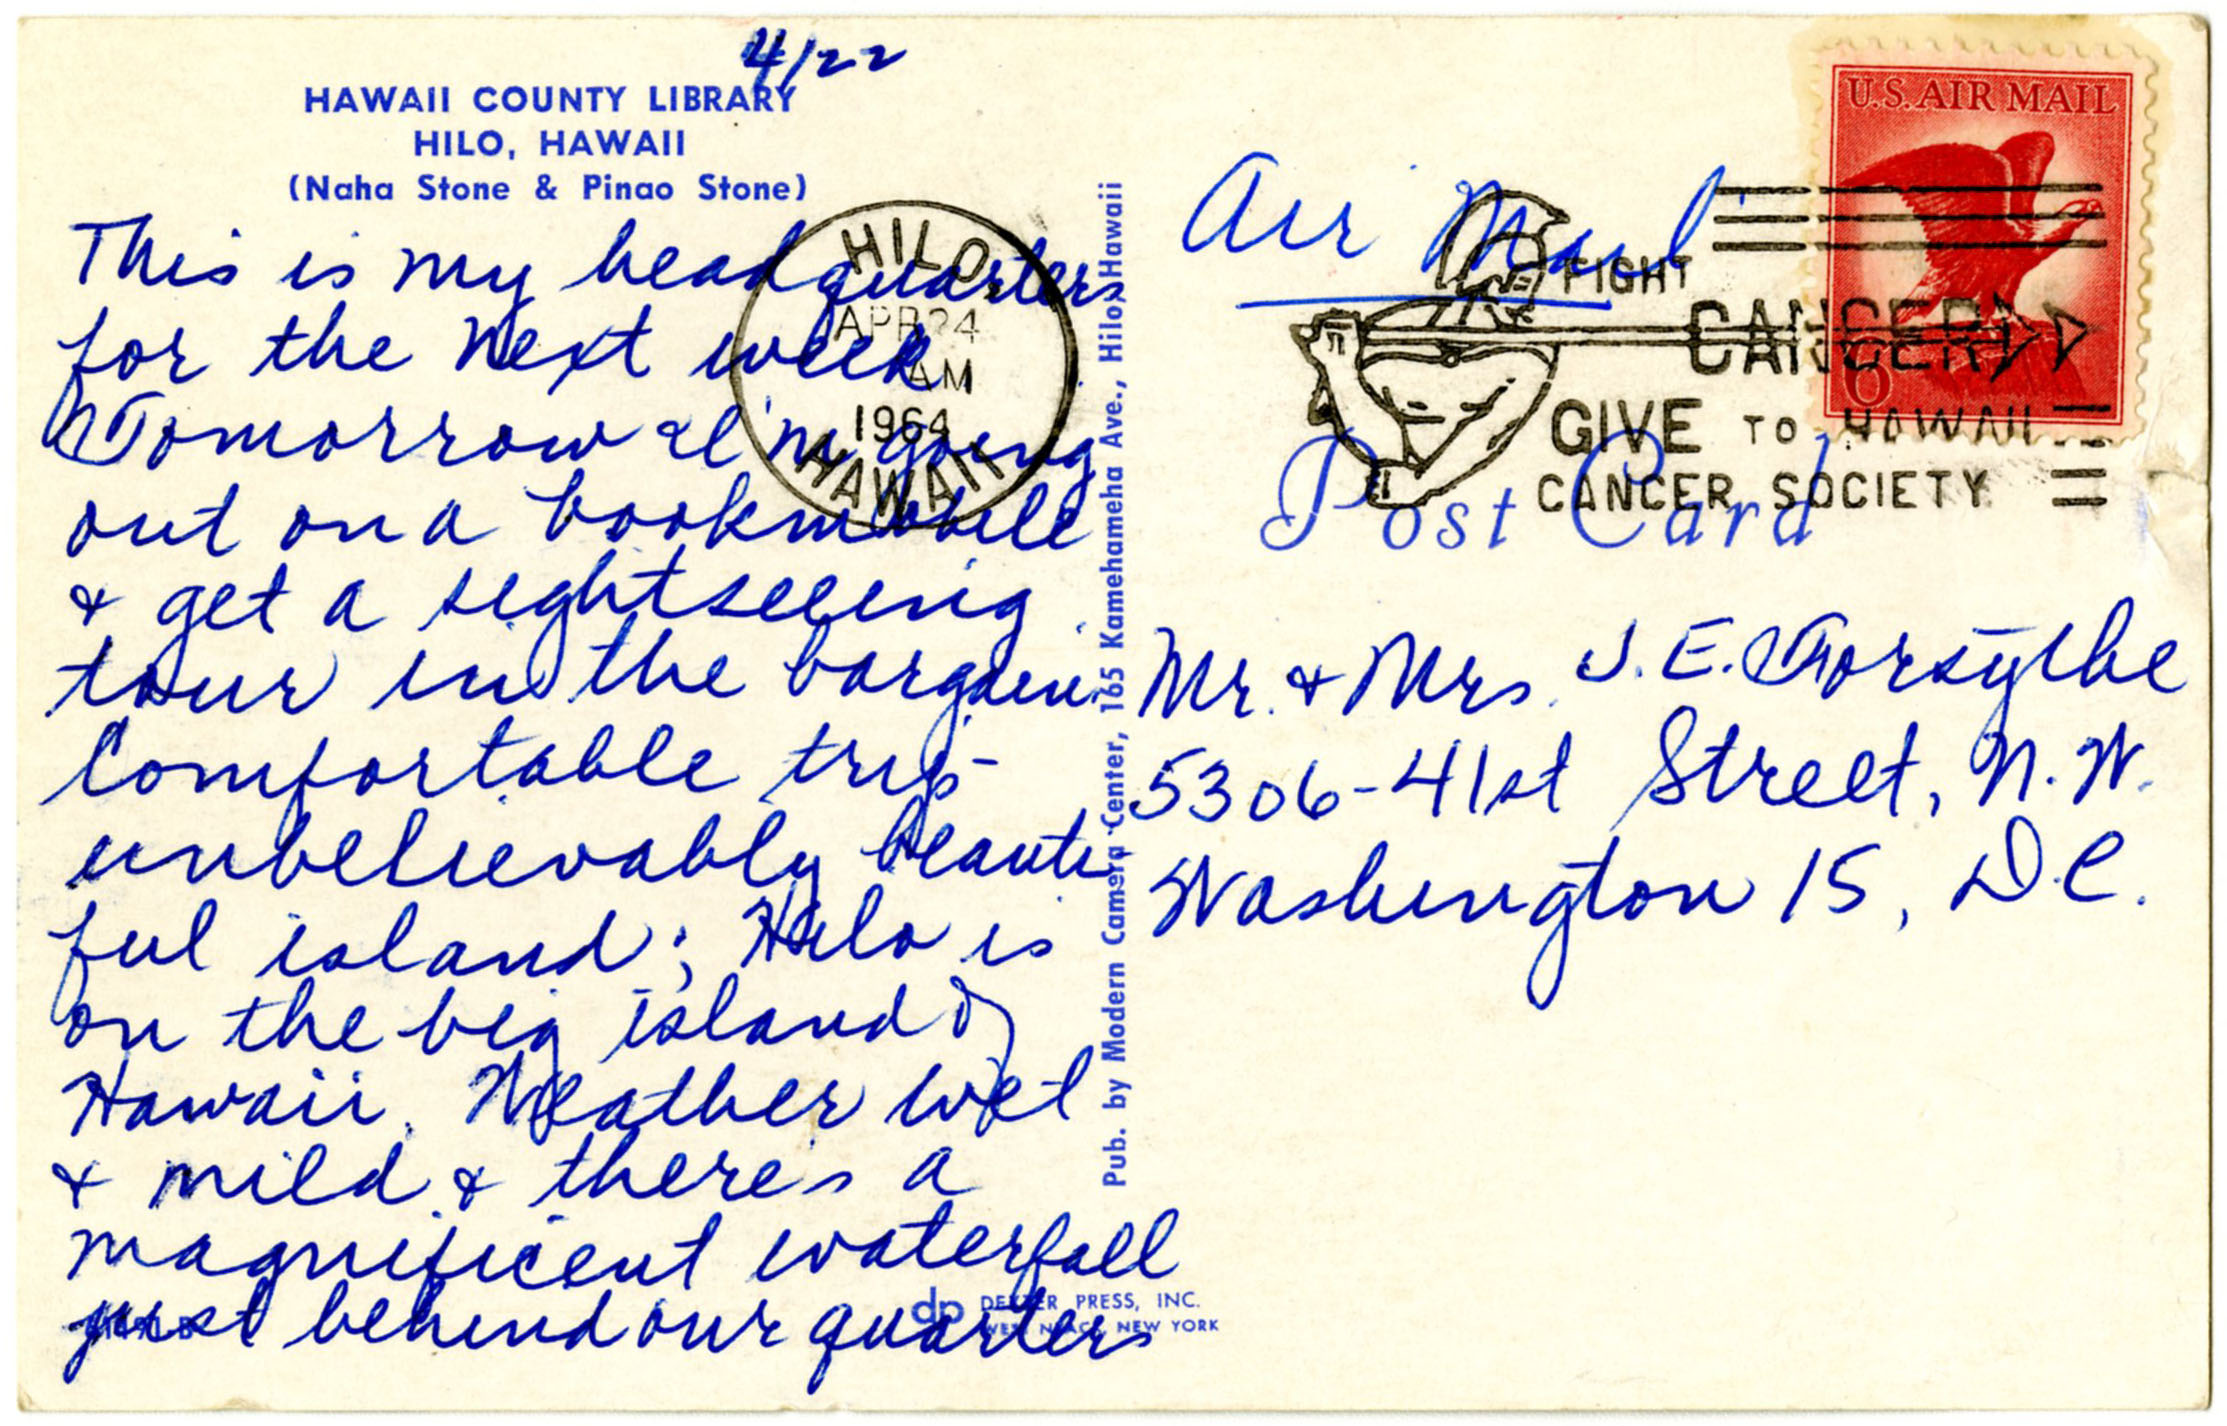 4/22
HAWAII COUNTY LIBRARY
HILO, HAWAII
(Naha Stone & Pinao Stone)
This is my headquarters
for the next week
Tomorrow I'm going
out on a bookmobile
& get a sightseeing
tour in the bargain.
Comfortable trip -
unbelievably beauti
ful island; Hilo is
on the big island of
Hawaii. Weather wet
& mild & there's a
magnificent waterfall
just behind our quarters
HILO,
APR 24
AM
1964
HAWAII
Pub. by Modern Camera Center, 165 Kamehameha Ave., Hilo, Hawaii
dp DEXTER PRESS, INC.
WEST NYACK, NEW YORK
U.S. AIR MAIL
6¢
Air Mail
FIGHT
CANCER
GIVE TO HAWAII
CANCER SOCIETY
Post Card
Mr. & Mrs. J. E. Forsythe
5306-41st Street, N.W.
Washington 15, D.C.